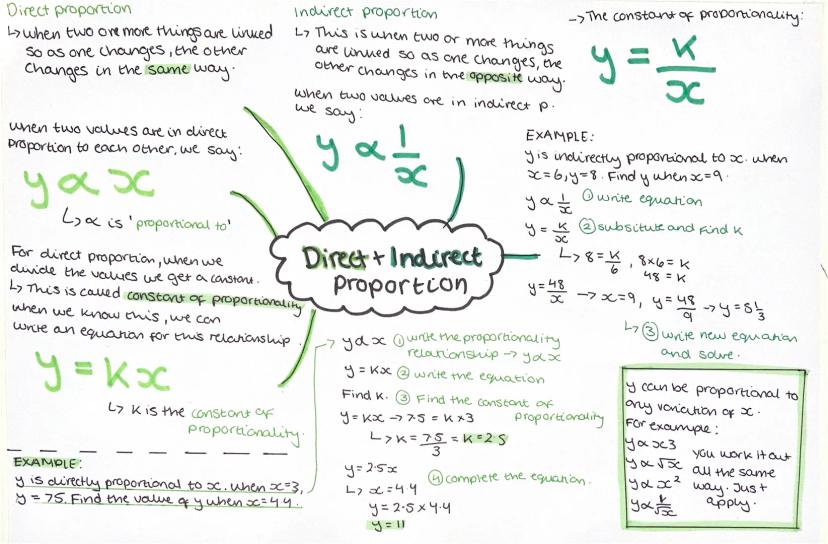 Direct proportion
↳ when two or more things are linked
so as one changes, the other
changes in the same way.
when two values are in direct
proportion to each other, we say:
y ∝ x
↳ ∝ is 'proportional to'
For direct proportion, when we
divide the values we get a constant.
↳ This is called constant of proportionality
when we know this, we can
write an equation for this relationship.
y = kx
↳ k is the constant of
proportionality.
EXAMPLE:
y is directly proportional to x. when x=3,
y = 7.5. Find the value of y when x=4.4.
→ y ∝ x ① write the proportionality
relationship → y ∝ x
y = kx ② write the equation
Find k. ③ Find the constant of
proportionality
y = kx → 7.5 = k × 3
↳ k = 7.5/3 = k = 2.5
y = 2.5x
④ complete the equation.
↳ x = 4.4
y = 2.5 × 4.4
y = 11
Direct + Indirect
proportion
Indirect proportion
↳ This is when two or more things
are linked so as one changes, the
other changes in the opposite way.
when two values are in indirect p.
we say:
y ∝ 1/x
→ The constant of proportionality:
y = k/x
EXAMPLE:
y is indirectly proportional to x. when
x=6, y=8. Find y when x=9.
y ∝ 1/x ① write equation
y = k/x ② subsitute and find k
↳ 8 = k/6, 8×6 = k
48 = k
y = 48/x → x=9, y = 48/9 → y = 5 1/3
↳ ③ write new equation
and solve.
y can be proportional to
any variation of x.
For example:
y ∝ x3
y ∝ √x
y ∝ x²
y ∝ 1/√x
you work it out
all the same
way. Just
apply.